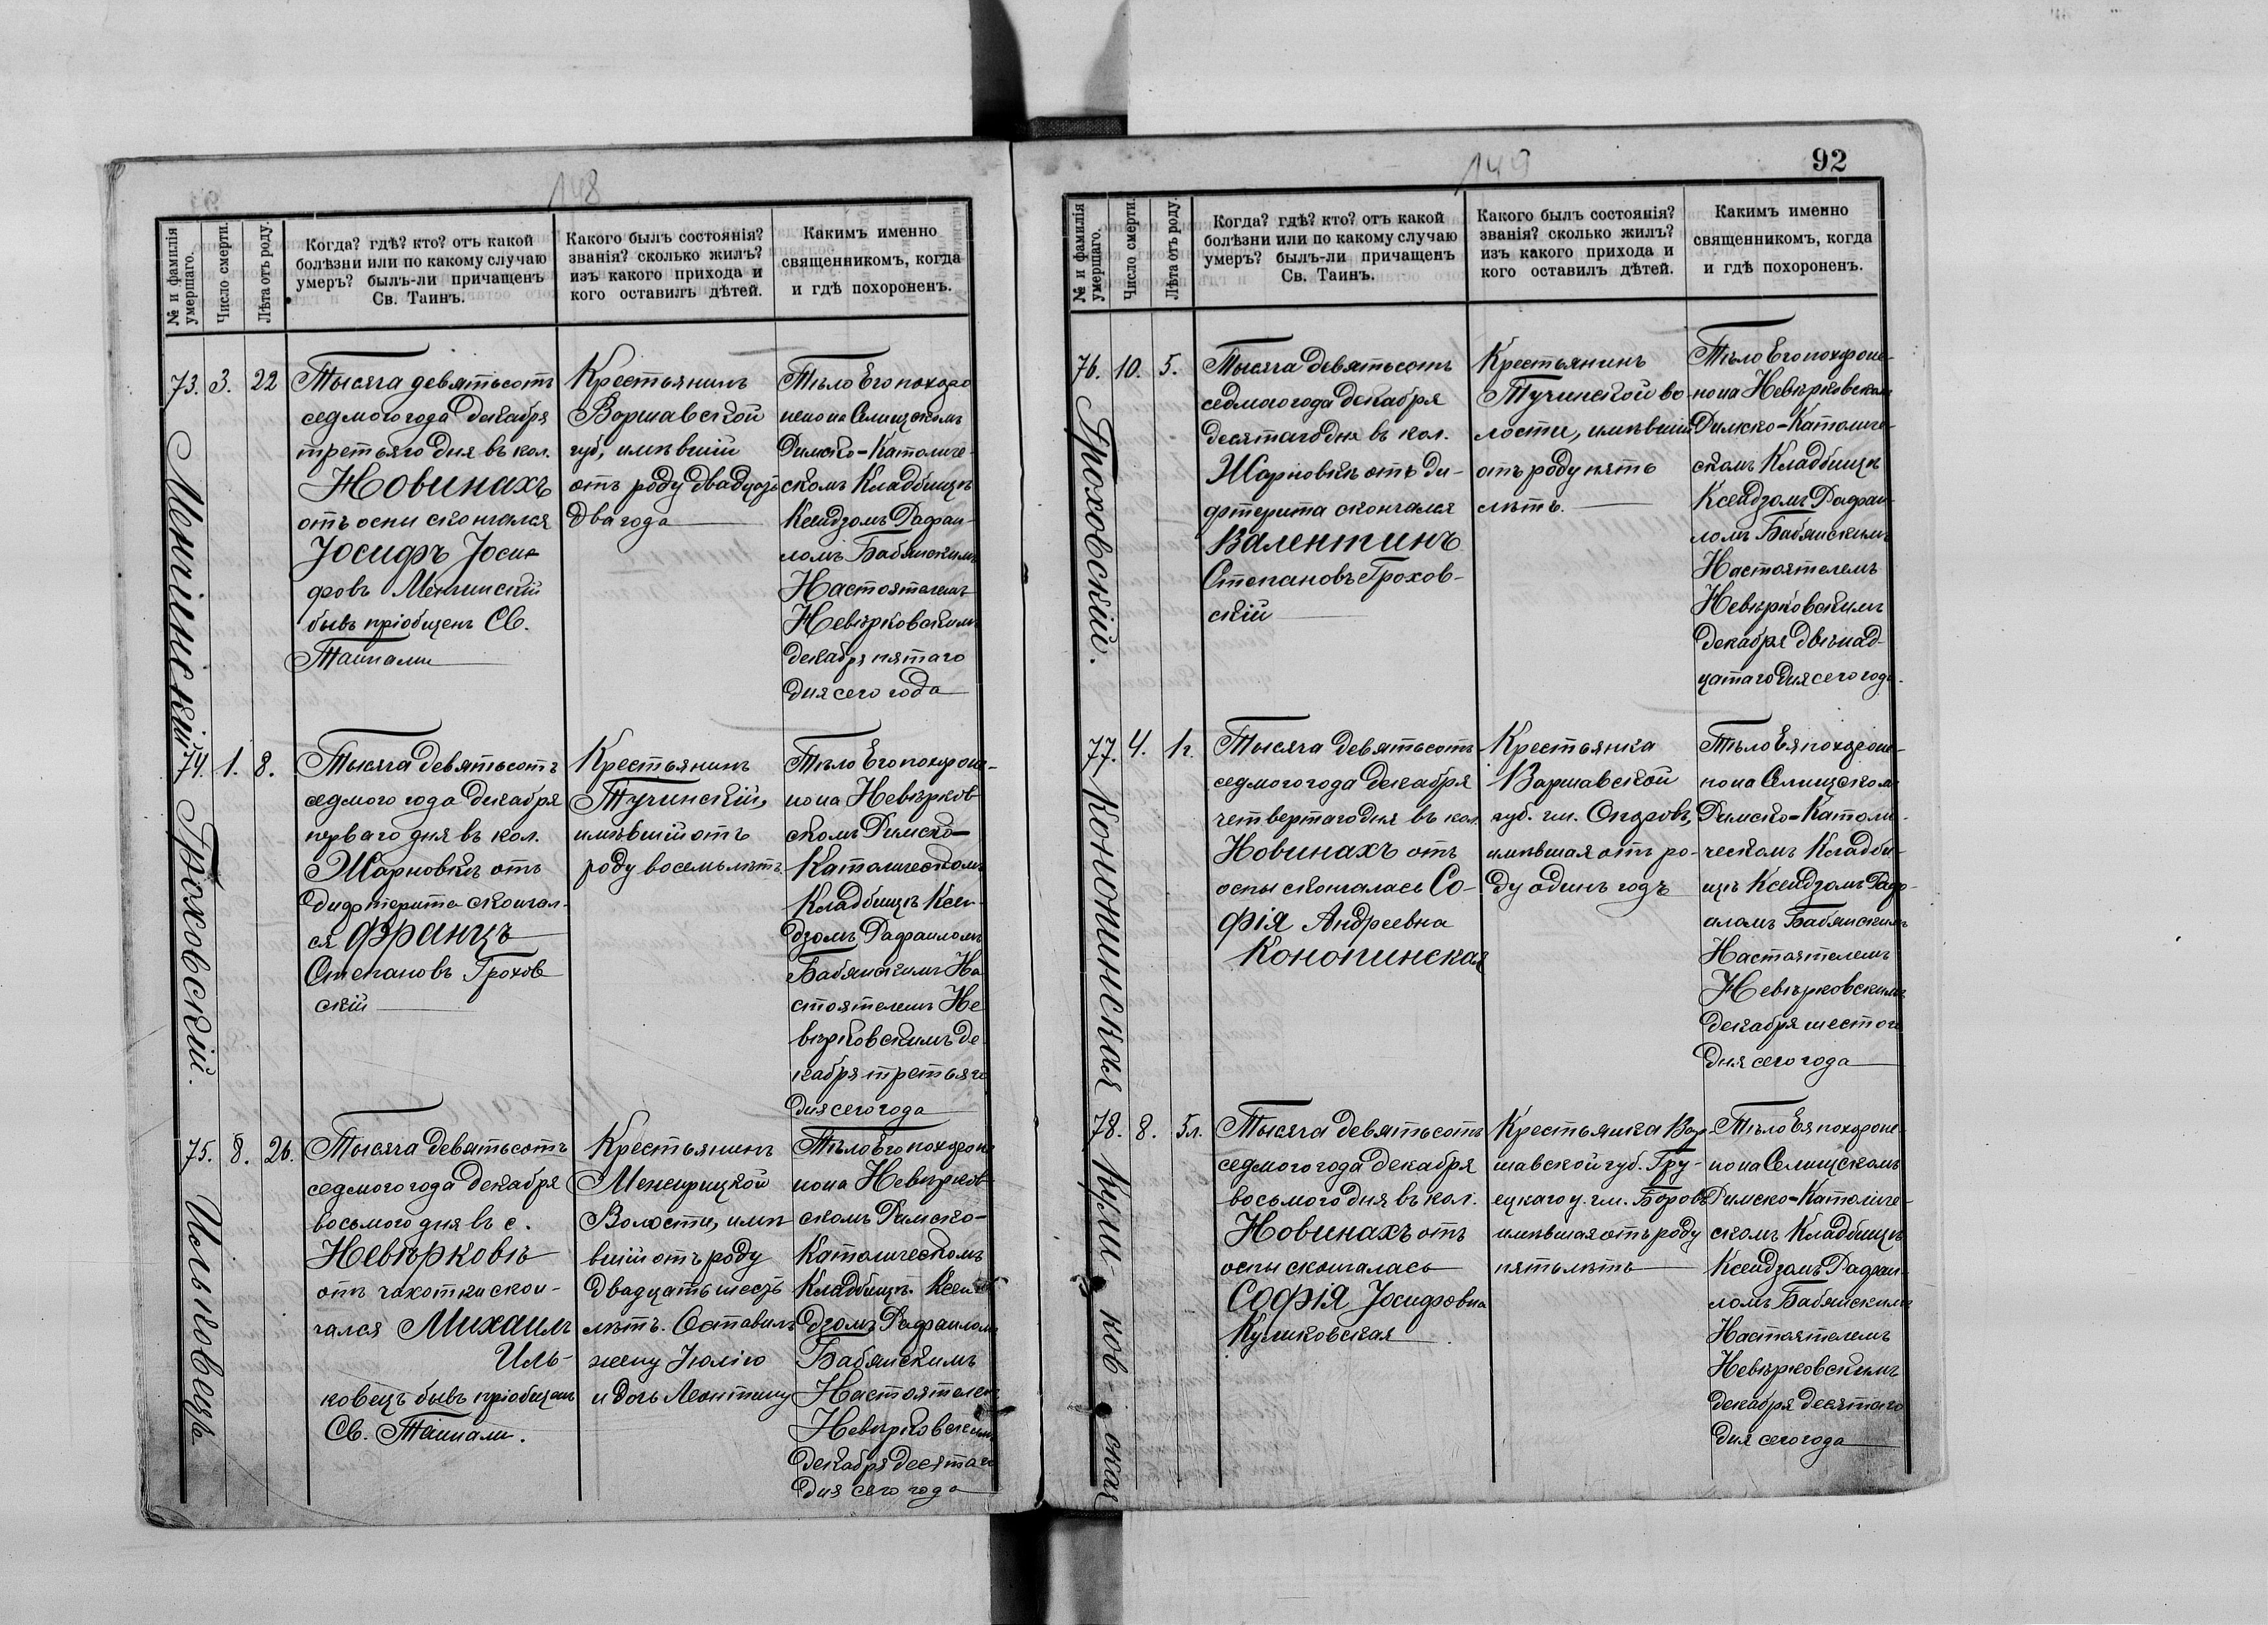 148
№ и фамилія
умершаго.
Число смерти.
Лѣта отъ роду.
Когда? гдѣ? кто? отъ какой
болѣзни или по какому случаю
умеръ? былъ-ли причащенъ
Св. Таинъ.
Какого былъ состоянія?
званія? сколько жилъ?
изъ какого прихода и
кого оставилъ дѣтей.
Какимъ именно
священникомъ, когда
и гдѣ похороненъ.
73.
Менчинскій.
3.
22
Тысяча девятьсотъ
седмого года Декабря
третьяго дня въ кол.
Новинахъ
отъ оспы скончался
Іосифъ Іоси-
фовъ Менчинскій
бывъ пріобщенъ Св.
Тайнами
Крестьянинъ
Варшавской
губ, имѣвшій
отъ роду двадцать
два года
Тѣло Его похоро
нено на Селищскомъ
Римско-Католиче-
скомъ Кладбищѣ
Ксендзомъ Рафаи-
ломъ Бабянскимъ
Настоятелемъ
Невѣрковскимъ
декабря пятаго
дня сего года
74.
Гроховскій.
1.
8.
Тысяча девятьсотъ
седмого года Декабря
перваго дня въ кол.
Жарновкѣ отъ
дифтерита скончал-
ся Францъ
Степановъ Грохов
скій
Крестьянинъ
Тучинскій,
имѣвшій отъ
роду восемь лѣтъ.
Тѣло Его похороне-
но на Невѣрков
скомъ Римско-
Католическомъ
Кладбищѣ Ксен-
дзомъ Рафаиломъ
Бабянскимъ На
стоятелемъ Не
вѣрковскимъ де
кабря третьяго
дня сего года
75.
Ильковецъ
8.
26.
Тысяча девятьсотъ
седмого года Декабря
восьмого дня въ с.
Невѣрковѣ
отъ чахотки скон-
чался Михаилъ
Иль-
ковецъ бывъ пріобщенъ
Св. Тайнами.
Крестьянинъ
Межирицкой
Волости, имѣ
вшій отъ роду
двадцать шесть
лѣтъ. Оставилъ
жену Юлію
и дочь Леонтину
Тѣло Его похороне
но на Невѣрков
скомъ Римско-
Католическомъ
Кладбищѣ Ксен
дзомъ Рафаиломъ
Бабянскимъ
Настоятелемъ
Невѣрковскимъ
Декабря десятаго
дня сего года
149
92
№ и фамилія
умершаго.
Число смерти.
Лѣта отъ роду.
Когда? гдѣ? кто? отъ какой
болѣзни или по какому случаю
умеръ? былъ-ли причащенъ
Св. Таинъ.
Какого былъ состоянія?
званія? сколько жилъ?
изъ какого прихода и
кого оставилъ дѣтей.
Какимъ именно
священникомъ, когда
и гдѣ похороненъ.
76.
Гроховскій.
10.
5.
Тысяча девятьсотъ
седмого года декабря
десятаго дня въ кол.
Жарновкѣ отъ ди-
фтерита скончался
Валентинъ
Степановъ Грохов-
скій
Крестьянинъ
Тучинской во
лости, имѣвшій
отъ роду пять
лѣтъ.
Тѣло Его похороне-
но на Невѣрковскомъ
Римско-Католиче-
скомъ Кладбищѣ
Ксендзомъ Рафаи-
ломъ Бабянскимъ
Настоятелемъ
Невѣрковскимъ
декабря двѣнад-
цатаго дня сего года.
77.
Конопинская
4.
1г.
Тысяча девятьсотъ
седмого года декабря
четвертаго дня въ кол.
Новинахъ отъ
оспы скончалась Со-
фія Андреевна
Конопинская
Крестьянка
Варшавской
имѣвшая отъ ро-
ду одинъ годъ
Тѣло Ея похороне-
но на Селищскомъ
Римско-Католи-
ческомъ Кладби-
щѣ Ксендзомъ Рафа-
иломъ Бабянскимъ
Настоятелемъ
Невѣрковскимъ
декабря шестого
дня сего года
78.
Куликовская
8.
5л.
Тысяча девятьсотъ
седмого года декабря
восьмого дня въ кол.
Новинахъ отъ
оспы скончалась
Софія Іосифовна
Куликовская
Крестьянка Вар-
шавской губ. Гру-
ецкаго у. гм. Боровъ
имѣвшая отъ роду
пять лѣтъ
Тѣло Ея похороне-
но на Селищскомъ
Римско-Католиче-
скомъ Кладбищѣ
Ксендзомъ Рафаи-
ломъ Бабянскимъ
Настоятелемъ
Невѣрковскимъ
декабря десятаго
дня сего года